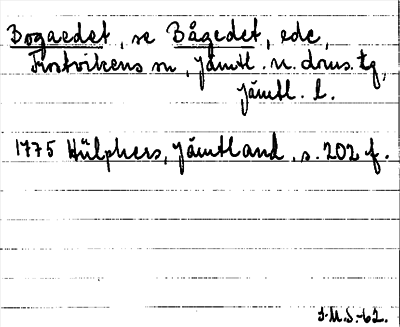 Bogaedet, se Bågedet, ede,
Frostvikens sn, Jämtl. n. doms. tg,
Jämtl. l.
1775 Hülphers, Jämtland, s. 202 f.
J.M.S.-62.